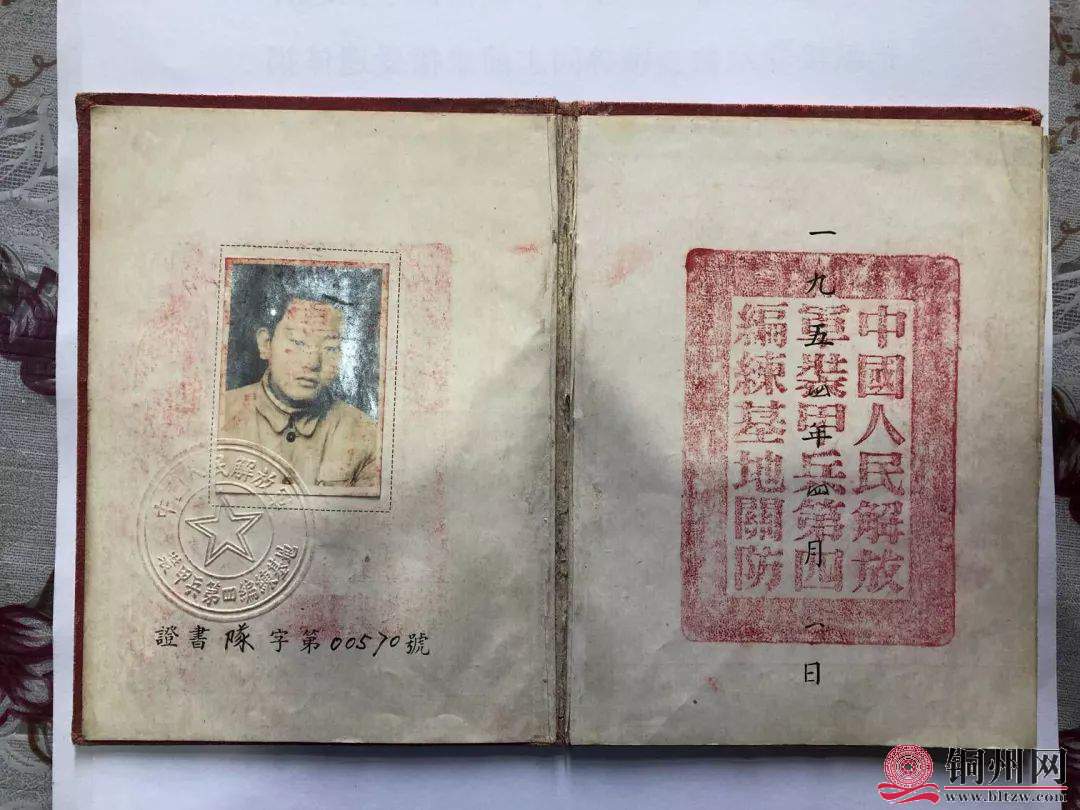 人民解放
裝甲兵第四編練基地
證書隊字第00570號
一九五四年四月一日
中國人民解放
軍裝甲兵第四
編練基地關防
铜州网
www.bltzw.com